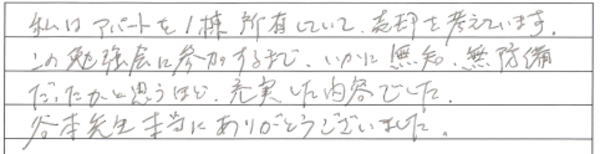 私はアパートを1棟所有していて、売却を考えています。
この勉強会に参加するまで、いかに無知、無防備
だったかと思うほど、充実した内容でした。
谷本先生本当にありがとうございました。